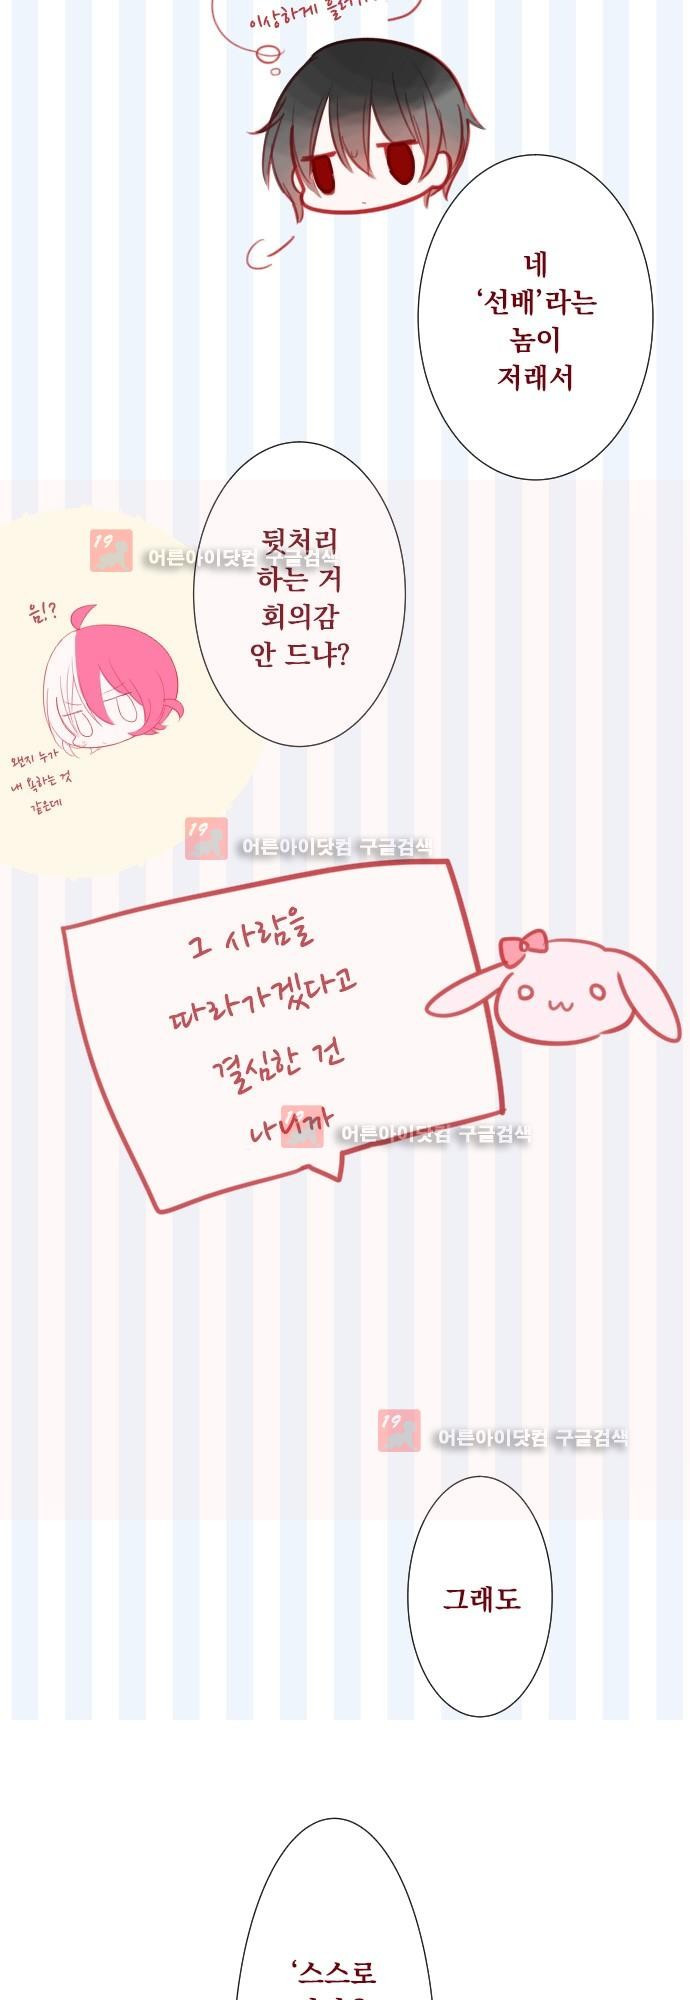 이상하게
네
‘선배’라는
놈이
저래서
뒷처리
하는 거
회의감
안 드냐?
19 어른아이닷컴 구글검색
음!?
왠지 누가
내 욕하는 것
같은데
19 어른아이닷컴 구글검색
그 사람을
따라가겠다고
결심한 건
나니까
19 어른아이닷컴 구글검색
19 어른아이닷컴 구글검색
그래도
‘스스로